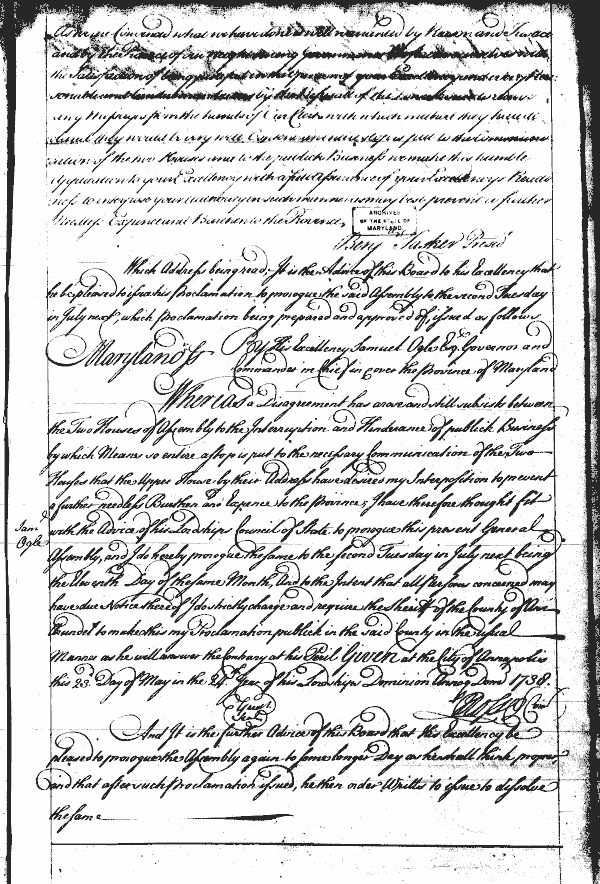 As we are Convinced what we have done is well warranted by Reason and Justice
and by the
the Satisfaction of being
by the
any Hopes from the
and they would be very well Content
cation of the two Houses and to the publick Business we make this humble
Application to your Excellency with a full Assurance of your Excellencys Readi
ness to interpose your Authority in such manner as may best prevent a further
Needless Expence and Burthen to the Province,
ARCHIVES
OF THE STATE OF
MARYLAND
Benj Tasker Presid
Which Address being read, It is the Advice of this Board to his Excellency that
he be pleased to issue his Proclamation to prorogue the said Assembly to the second Tuesday
in July next, which Proclamation being prepared and approved of, issued as follows
Maryland ss By His Excellency Samuel Ogle Esqr. Governor and
Commander in Chief in & over the Province of Maryland
Whereas a Disagreement has arose and still subsists between
the Two Houses of Assembly to the Interruption and Hinderance of publick Business
by which Means so entire a stop is put to the necessary Communication of the Two
Houses that the Upper House by their Address have desired my Interposition to prevent
a further needless Burthen and Expence to the Province; I have therefore thought fit
Sam
Ogle
with the Advice of his Lordships Council of State to prorogue this present General
Assembly, and I do hereby prorogue the same to the second Tuesday in July next being
the eleventh Day of the same Month, And to the Intent that all Persons concerned may
have due Notice thereof I do strictly charge and require the Sheriff of the County of Ann
Arundel to make this my Proclamation publick in the said County in the usual
Manner as he will answer the Contrary at his Peril Given at the City of Annapolis
this 23d. Day of May in the 24th Year of his Lordships Dominion Annoq Domi 1738.
Great
Seal
And It is the further Advice of this Board that his Excellency be
pleased to prorogue the Assembly again to some longer Day as he shall think proper
and that after such Proclamation issued, he then order Writts to issue to dissolve
the same